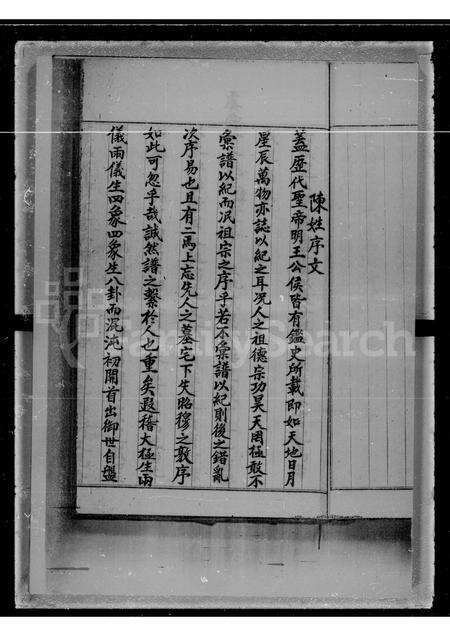 陳姓序文
蓋歷代聖帝明王公侯皆有鑑史所載即如天地日月
星辰萬物亦誌以紀之耳况人之祖德宗功昊天罔極敢不
彙譜以紀而泯祖宗之序乎若不彙譜以紀則後之錯亂
次序易也且有二焉上忘先人之墓宅下失昭穆之敦序
如此可忽乎哉誠然譜之繫於人也重矣遐稽太極生兩
儀兩儀生四象四象生八卦而混沌初開首出御世自盤
FamilySearch